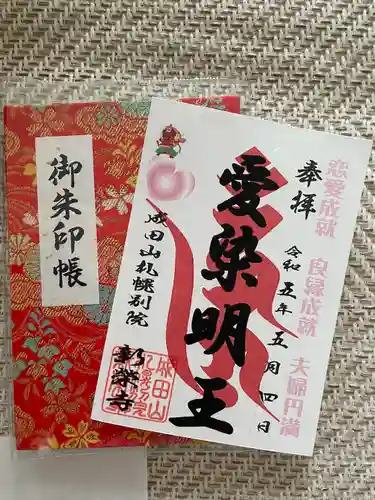 御朱印帳
恋愛成就
良縁成就
夫婦円満
奉拝
令和五年五月四日
愛染明王
成田山札幌別院
新栄寺